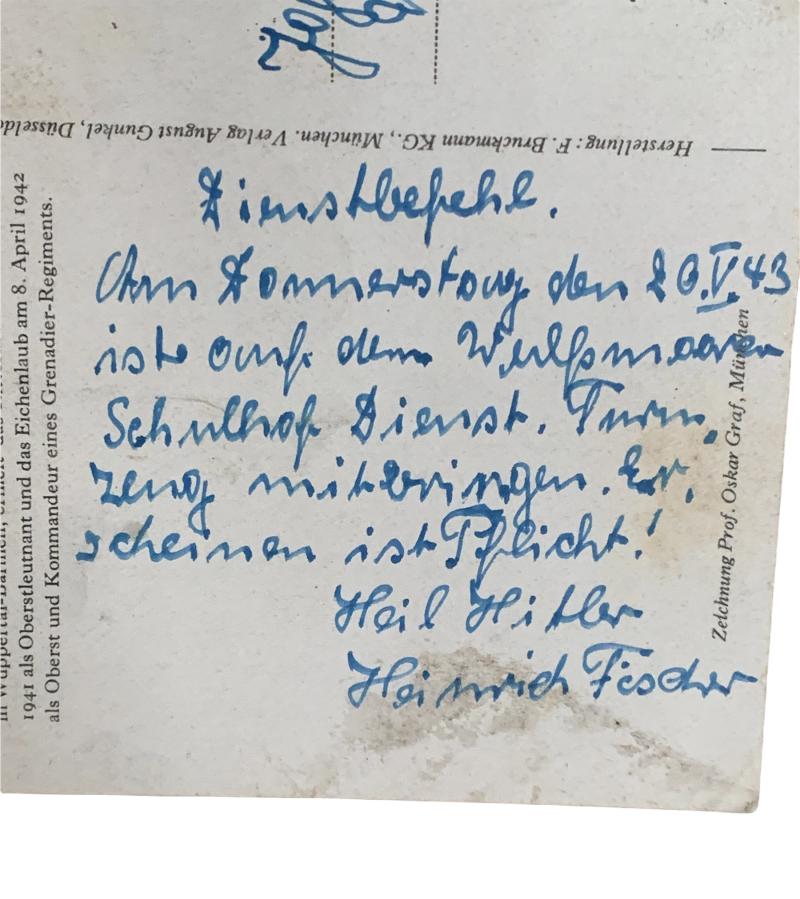 Herstellung: F. Bruckmann KG., München. Verlag August Gunkel, Düsseldo
Dienstbefehl.
Am Donnerstag den 20.V.43
ist auf dem Wulfsmoorer
Schulhof Dienst. Turn,
zeug mitbringen. Er,
scheinen ist Pflicht!
Heil Hitler
Heinrich Fischer
in Wuppertal-Barmen,
1941 als Oberstleutnant und das Eichenlaub am 8. April 1942
als Oberst und Kommandeur eines Grenadier-Regiments.
Zeichnung Prof. Oskar Graf, München